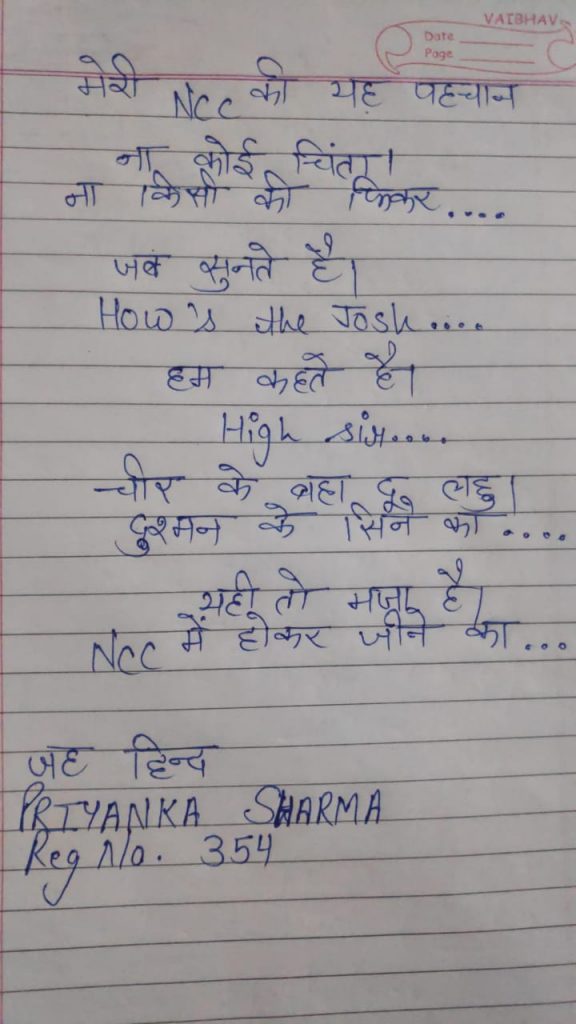 VAIBHAV
Date
Page
मेरी NCC की यह पहचान
ना कोई चिंता।
ना किसी की फिकर....
जब सुनते है।
How's the Josh....
हम कहते है।
High sir....
चीर के बहा दू लहु।
दुश्मन के सिने का....
यही तो मजा है।
NCC में होकर जीने का...
जह हिन्द
PRIYANKA SHARMA
Reg No. 354